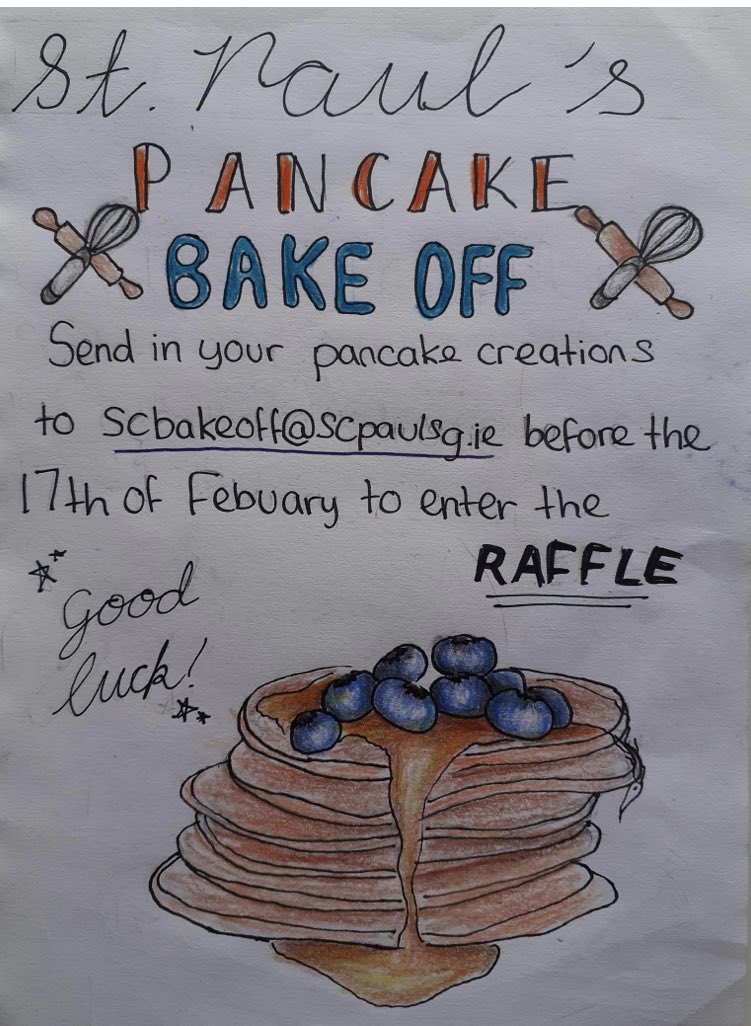 St. Paul's
PANCAKE
BAKE OFF
Send in your pancake creations
to scbakeoff@scpaulsg.ie before the
17th of Febuary to enter the
RAFFLE
Good
luck!